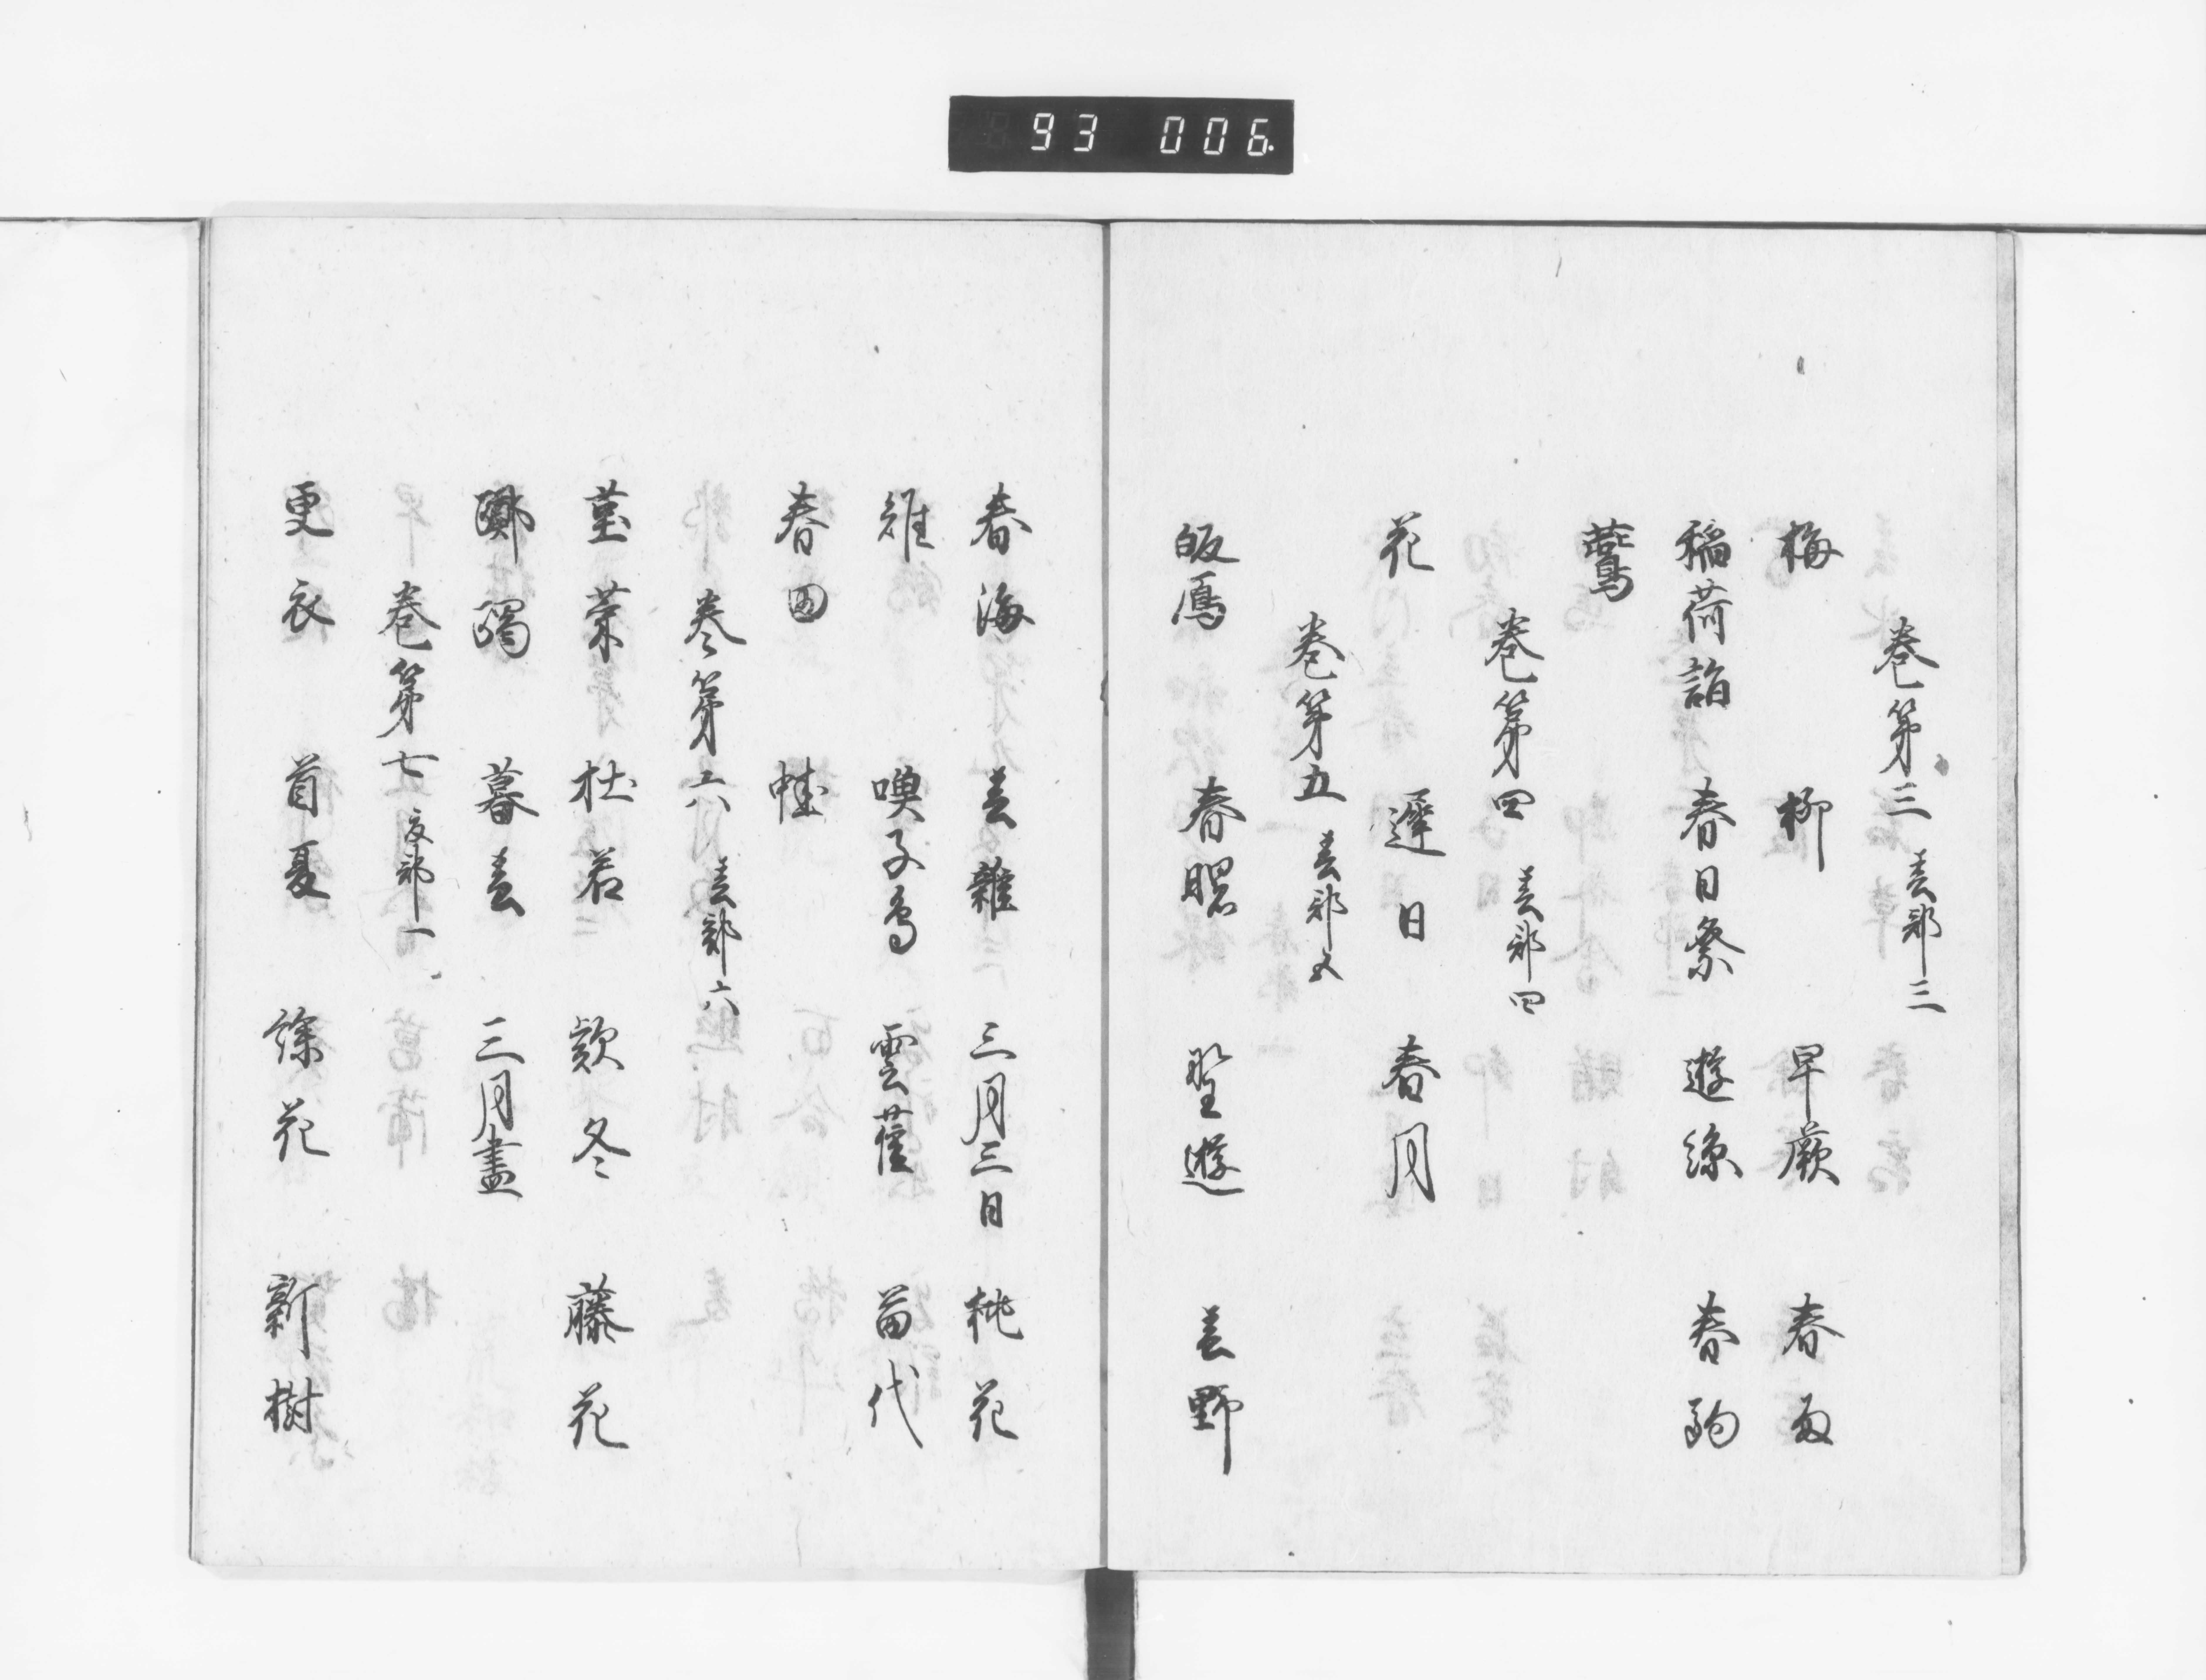 93 006
巻第三 春部三
梅 柳 早蕨 春雨
稲荷詣 春日祭 遊絲 春駒
鷰
巻第四 春部四
花 遲日 春月
巻第五 春部五
皈鴈 春曙 野遊 春野
春海 春雜 三月三日 桃花
雉 喚子鳥 雲雀 苗代
春田 蛙
巻第六 春部六
菫菜 杜若 欵冬 藤花
躑躅 暮春 三月盡
巻第七 夏部一
更衣 首夏 餘花 新樹